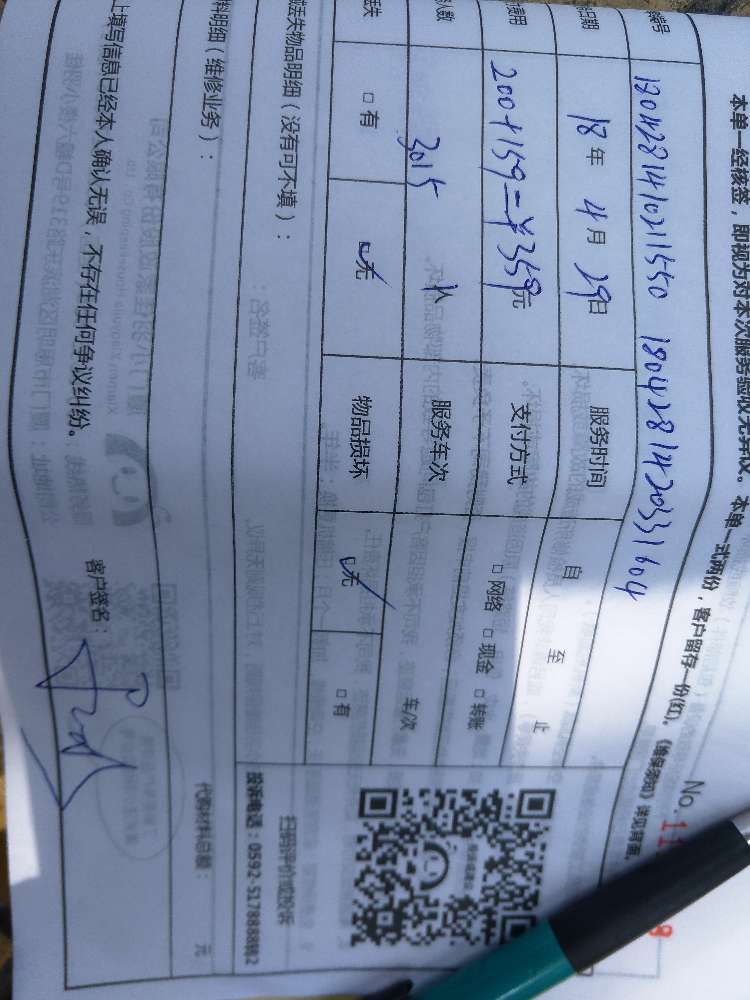 本单一经核签，即视为对本次服务验收无异议。本单一式两份，客户留存一份(红)。《维保须知》详见背面。
No. 11
编号 1804281410211550 1804281420331604
日期 18年 4月 29日 服务时间 自 至 止
费用 200+159=¥359元 支付方式 □网络 □现金 □转账
人数 人 服务车次 车次
丢失 □有 ☑无 物品损坏 ☑无 □有
丢失物品明细（没有可不填）：
扫码评价或投诉
料明细（维修业务）：
代购材料总额： 元
上填写信息已经本人确认无误，不存在任何争议纠纷。 客户签名：